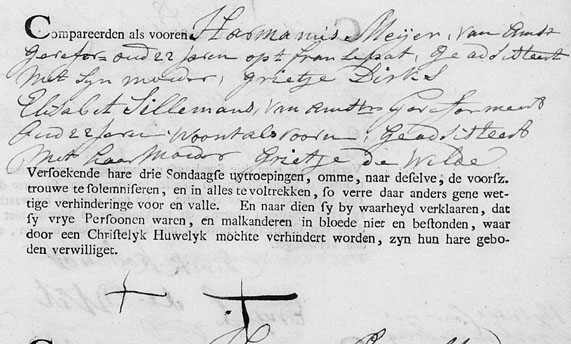 Compareerden als vooren Harmanus Meijer, van Amst
Gerefor- oud 22 Jaren opt fran Lepat, Geadsisteert
Met syn moeder, Grietje Dirks
Elisabet Sillemans, van Amst Gereformeert
Oud 22 Jaren woont als voorn Geadsisteert
Met haar Moeder Grietje de Wilde
Versoekende hare drie Sondaagse uytroepingen, omme, naar deselve, de voorsz.
trouwe te solemniseren, en in alles te voltrekken, so verre daar anders gene wet-
tige verhinderinge voor en valle. En naar dien sy by waarheyd verklaaren, dat
sy vrye Persoonen waren, en malkanderen in bloede niet en bestonden, waar
door een Christelyk Huwelyk mochte verhindert worden, zyn hun hare gebo-
den verwilliget.